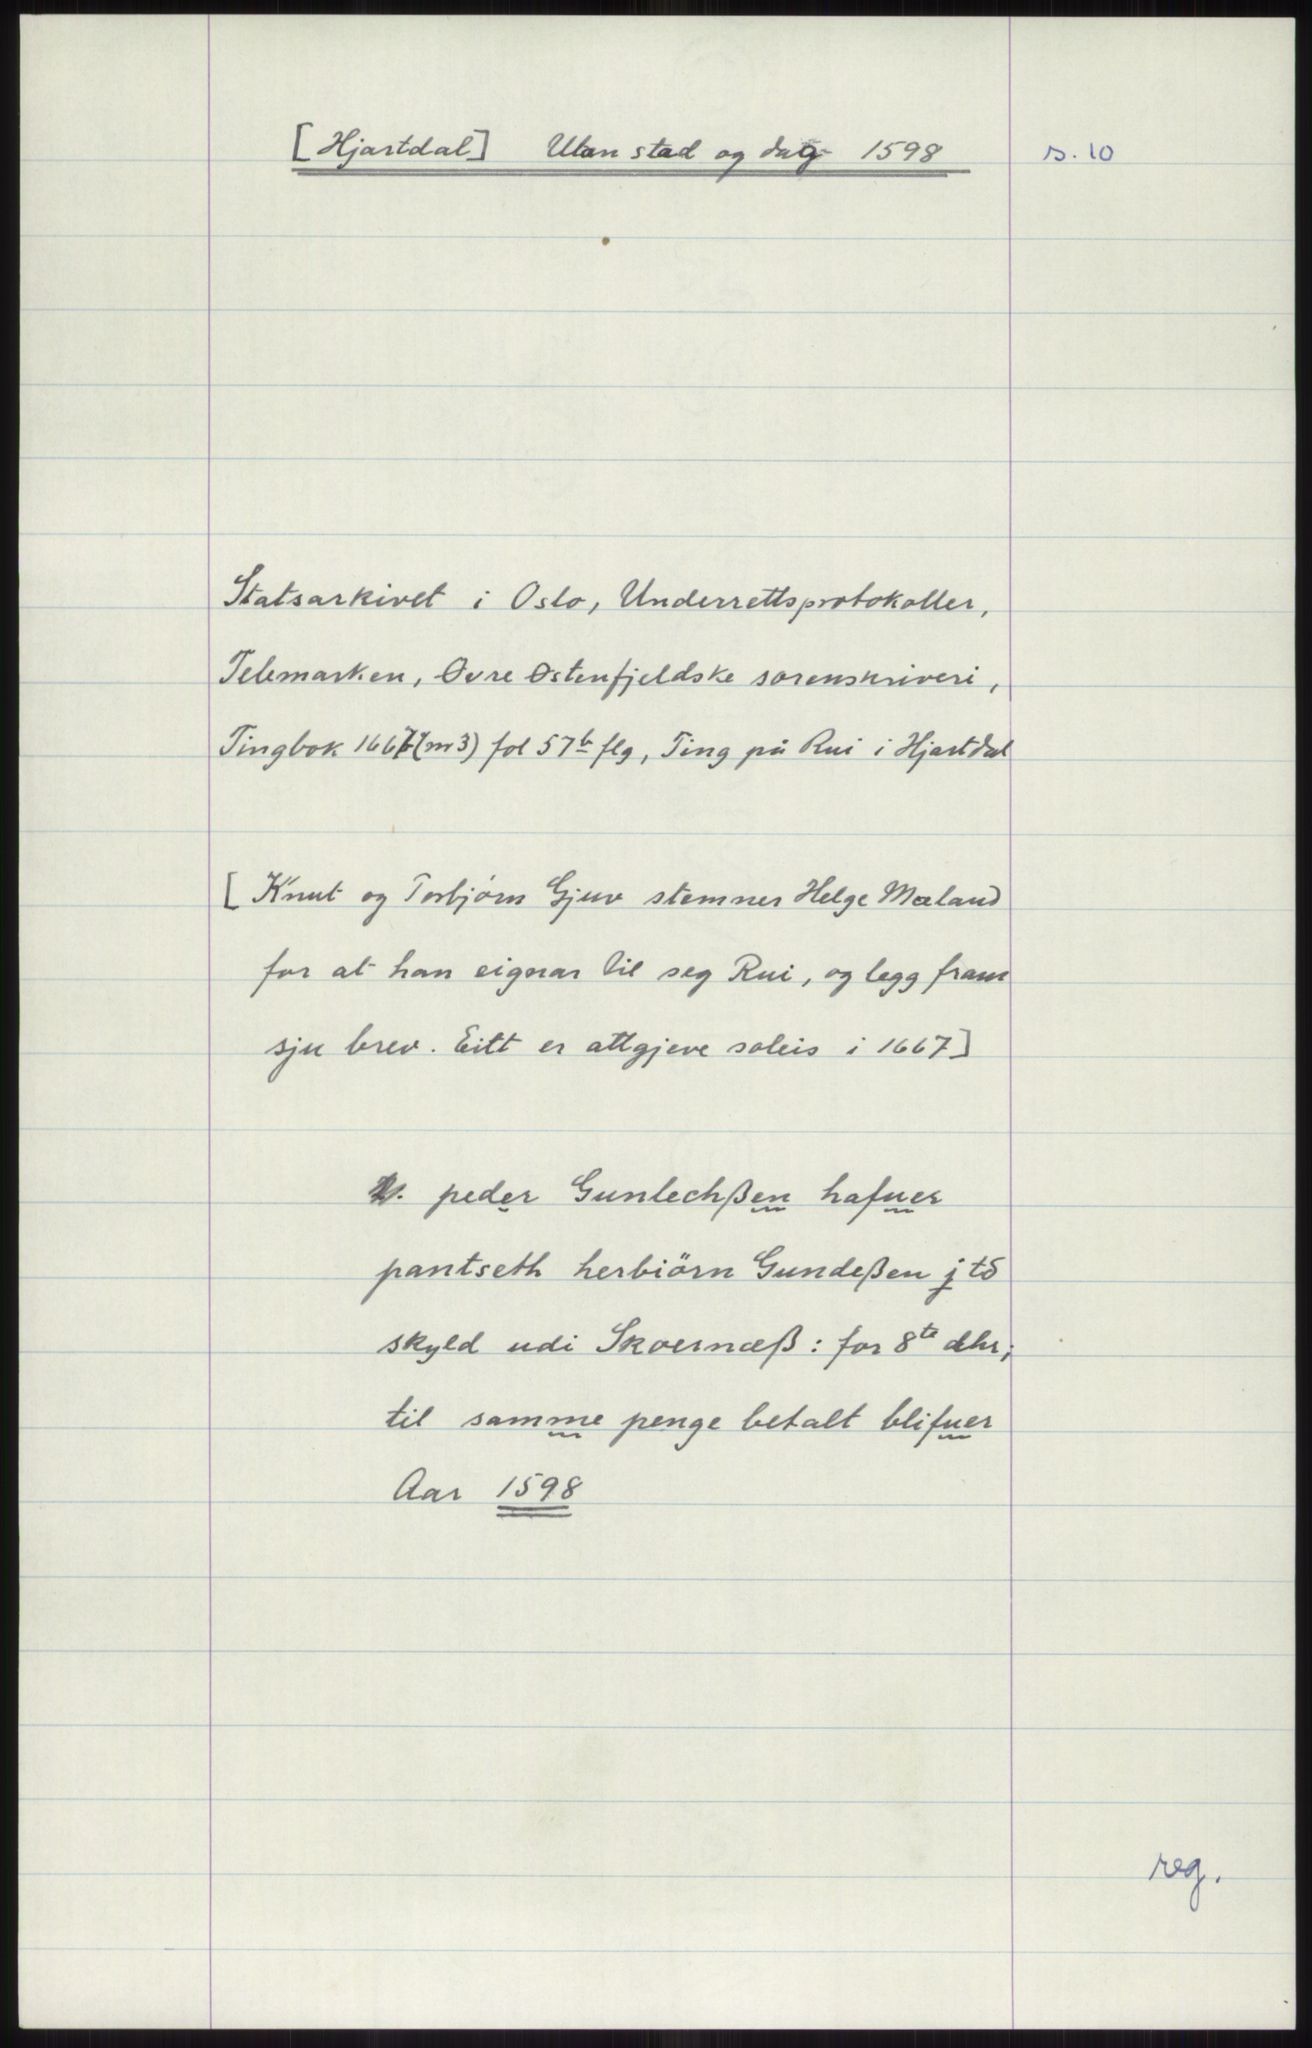 [Hjartdal] Utan stad og dag 1598 s. 10
Statsarkivet i Oslo, Underrettsprotokoller,
Telemarken, Øvre Østenfjeldske sorenskriveri,
Tingbok 1667 (nr 3) fol 57b flg, Ting på Rui i Hjartdal
[Knut og Torbjørn Gjuv stemner Helge Mæland
for at han eignar til seg Rui, og legg fram
sju brev. Eitt er attgjeve soleis i 1667]
peder Gunlechßen hafuer
pantseth herbiörn Gundeßen j td
skyld udi Skoernæß: for 8te dlr;
til samme penge betalt blifuer
Aar 1598
reg.